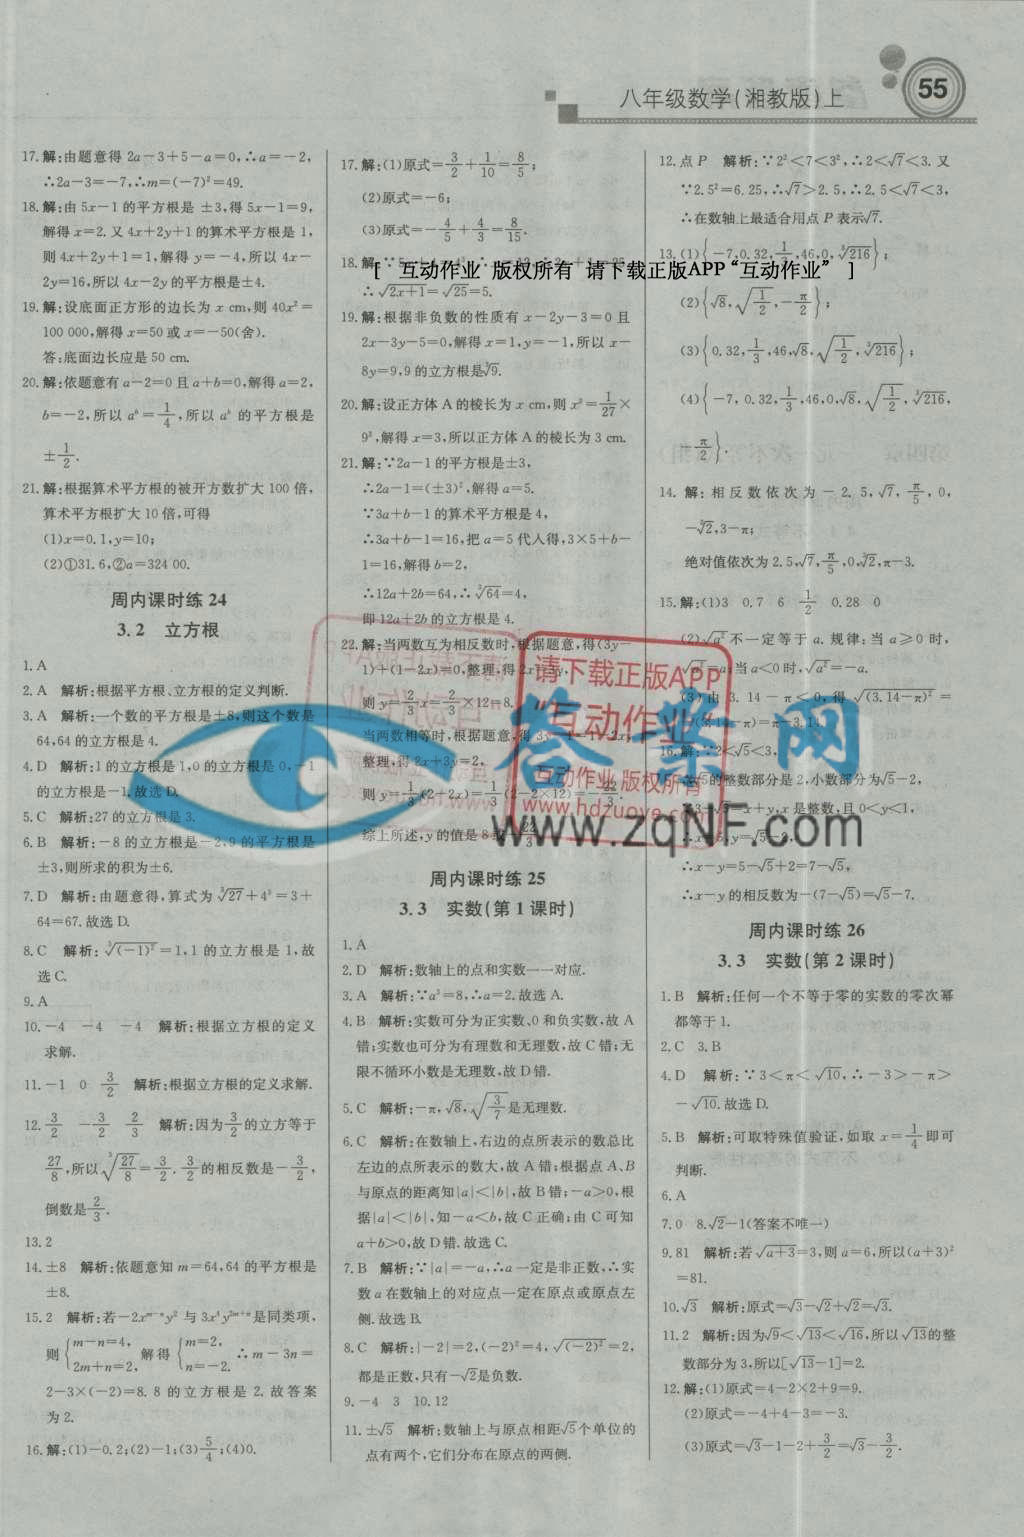 八年级数学(湘教版)上
55
17.解:由题意得 2a-3+5-a=0,∴a=-2,
∴2a-3=-7,∴m=(-7)²=49.
18.解:由 5x-1 的平方根是 ±3,得 5x-1=9,
解得 x=2.又 4x+2y+1 的算术平方根是 1,
则 4x+2y+1=1,解得 y=-4,所以 4x-
2y=16,所以 4x-2y 的平方根是±4.
19.解:设底面正方形的边长为 x cm,则 40x²=
100 000,解得 x=50 或 x=-50(舍).
答:底面边长应是 50 cm.
20.解:依题意有 a-2=0 且 a+b=0,解得 a=2,
b=-2,所以 aᵇ=1/4,所以 aᵇ 的平方根是
±1/2.
21.解:根据算术平方根的被开方数扩大 100 倍,
算术平方根扩大 10 倍,可得
(1)x=0.1,y=10;
(2)①31.6,②a=324 00.
周内课时练 24
3.2 立方根
1.A
2.A 解析:根据平方根、立方根的定义判断.
3.A 解析:一个数的平方根是±8,则这个数是
64,64 的立方根是 4.
4.D 解析:1 的立方根是 1,0 的立方根是 0,-1
的立方根是-1.故选 D.
5.C 解析:27 的立方根是 3.
6.B 解析:-8 的立方根是-2,9 的平方根是
±3,则所求的积为±6.
7.D 解析:由题意得,算式为 ∛27+4³=3+
64=67.故选 D.
8.C 解析:∛(-1)²=1,1 的立方根是 1,故
选 C.
9.A
10.-4 -4 -4 解析:根据立方根的定义
求解.
11.-1 0 3/2 解析:根据立方根的定义求解.
12.3/2 -3/2 2/3 解析:因为3/2的立方等于
27/8,所以∛(27/8)=3/2.3/2的相反数是-3/2,
倒数是2/3.
13.2
14.±8 解析:依题意知 m=64,64 的平方根是
±8.
15.2 解析:若-2xᵐ⁻ⁿy² 与 3x⁴y²ᵐ⁺ⁿ是同类项,
则{m-n=4, 2m+n=2, 解得{m=2, n=-2. ∴m-3n=
2-3×(-2)=8.8 的立方根是 2.故答案
为 2.
16.解:(1)-0.2;(2)-1;(3)5/4;(4)0.
17.解:(1)原式=3/2+1/10=8/5;
(2)原式=-6;
(3)原式=-4/5+4/3=8/15.
[ 互动作业 版权所有 请下载正版APP“互动作业” ]
∴√(2x+1)=√25=5.
19.解:根据非负数的性质有 x-2y-3=0 且
2x-3y-5=0,解得 x=1,y=-1,所以 x-
8y=9,9 的立方根是∛9.
20.解:设正方体 A 的棱长为 x cm,则 x³=1/27×
9³,解得 x=3,所以正方体 A 的棱长为 3 cm.
21.解:∵2a-1 的平方根是±3,
∴2a-1=(±3)²,解得 a=5.
∵3a+b-1 的算术平方根是 4,
∴3a+b-1=16,把 a=5 代人得,3×5+b-
1=16,解得 b=2,
∴12a+2b=64,∴∛64=4,
即 12a+2b 的立方根是 4.
22.解:当两数互为相反数时,根据题意,得(3y-
1)+(1-2x)=0,整理,得 2x=3y,
则 y=2/3x=2/3×12=8.
当两数相等时,根据题意,得 3y-1=1-2x,
整理,得 2x+3y=2,
则 y=1/3(2-2x)=1/3(2-2×12)=-22/3.
综上所述,y 的值是 8或-22/3.
周内课时练 25
3.3 实数(第 1 课时)
1.A
2.D 解析:数轴上的点和实数一一对应.
3.A 解析:∵a³=8,∴a=2.故选 A.
4.B 解析:实数可分为正实数、0 和负实数,故 A
错;实数也可分为有理数和无理数,故 C 错;无
限不循环小数是无理数,故 D 错.
5.C 解析:-π,√8,√(3/7)是无理数.
6.C 解析:在数轴上,右边的点所表示的数总比
左边的点所表示的数大,故 A 错;根据点 A、B
与原点的距离知|a|<|b|,故 B 错;-a>0,根
据|a|<|b|,知-a<b,故 C 正确;由 C 可知
a+b>0,故 D 错.故选 C.
7.B 解析:∵|a|=-a,∴a 一定是非正数,∴实
数 a 在数轴上的对应点一定在原点或原点左
侧.故选 B
8.C 解析:|-2|=2,(-2)²=4,√(-2)²=2,
都是正数,只有-√2是负数.
9.-4 3 10.12
11.±√5 解析:数轴上与原点相距√5个单位的
点有两个,它们分布在原点的两侧.
12.点 P 解析:∵2²<7<3²,∴2<√7<3.又
∵2.5²=6.25,∴√7>2.5,∴2.5<√7<3,
∴在数轴上最适合用点 P 表示√7.
13.(1){-7,0.32,1/3,46,0,∛216};
(2){√8,√(1/2),-π/2};
(3){0.32,1/3,46,√8,√(1/2),∛216};
(4){-7,0.32,1/3,46,0,√8,√(1/2),∛216,
-π/2}.
14.解:相反数依次为-2.5,√7,π/5,0,
-∛2,3-π;
绝对值依次为 2.5,√7,π/5,0,∛2,π-3.
15.解:(1)3 0.7 6 1/2 0.28 0
(2)√a²不一定等于 a.规律:当 a≥0 时,
√a²=a;当 a<0 时,√a²=-a.
(3)由 3.14-π<0,得√(3.14-π)²=
-(3.14-π)=π-3.14.
16.解:∵2<√5<3,
∴√5的整数部分是 2,小数部分为√5-2,
x 是整数,且 0<y<1,
∴x=5,y=√5-2,
∴x-y=5-√5+2=7-√5,
∴x-y 的相反数为-(7-√5)=√5-7.
周内课时练 26
3.3 实数(第 2 课时)
1.B 解析:任何一个不等于零的实数的零次幂
都等于 1.
2.C 3.B
4.D 解析:∵3<π<√10,∴-3>-π>
-√10.故选 D.
5.B 解析:可取特殊值验证,如取 x=1/4即可
判断.
6.A
7.0 8.√2-1(答案不唯一)
9.81 解析:若√(a+3)=3,则 a=6,所以(a+3)²
=81.
10.√3 解析:原式=√3-√2+√2=√3.
11.2 解析:因为√9<√13<√16,所以√13的整
数部分为 3,所以[√13-1]=2.
12.解:(1)原式=4-2×2+9=9.
(2)原式=-4+4-3=-3.
(3)原式=√3-1-2+3/2=√3-3/2.
请下载正版APP
“互动作业”
互动作业 版权所有
www.hdzuoye.com
答案网
www.zqNF.com